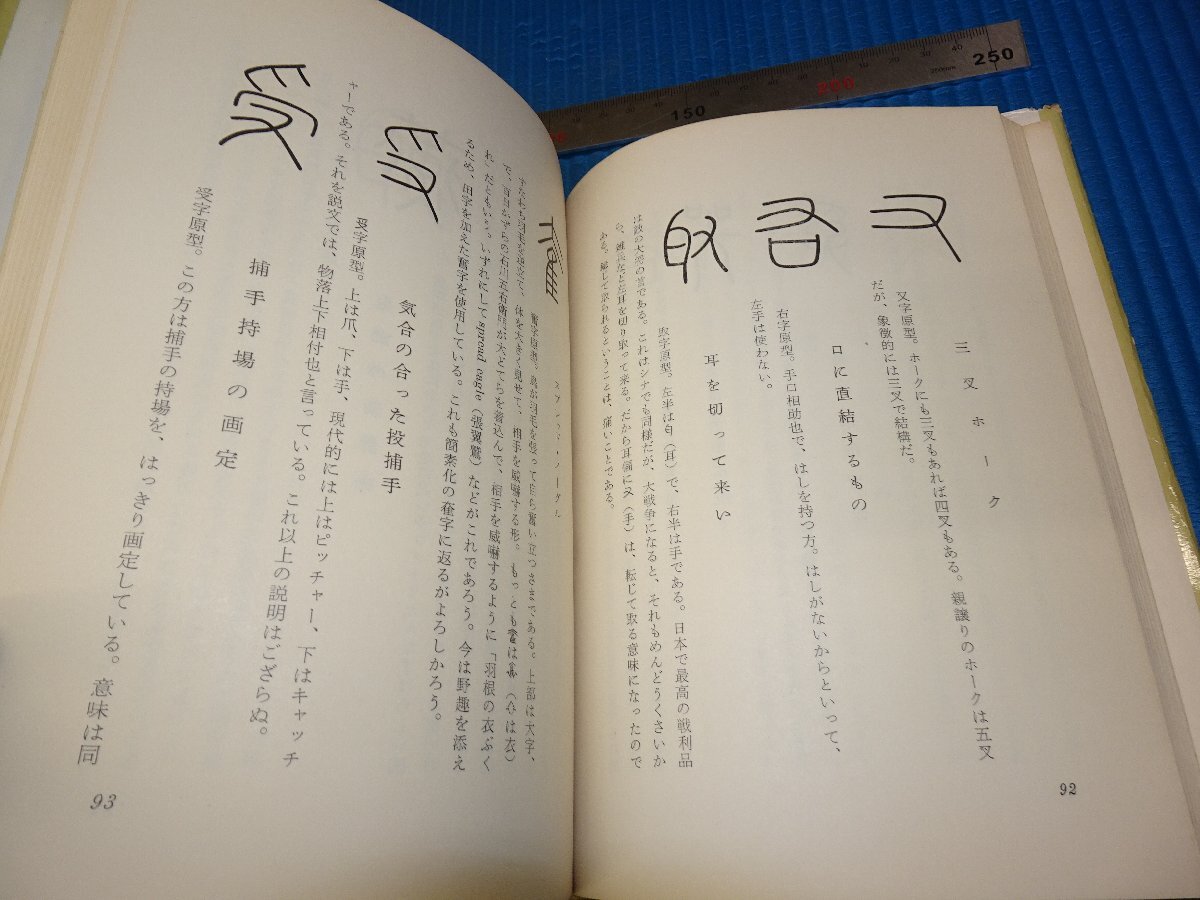 三叉ホーク
又字原型。ホークにも三叉もあれば四叉もある。親譲りのホークは五叉
だが、象徴的には三叉で結構だ。
口に直結するもの
右字原型。手口相助也で、はしを持つ方。はしがないからといって、
左手は使わない。
耳を切って来い
取字原型。左半は自(耳)で、右半は手である。日本で最高の戦利品
は敵の大将の首である。これはシナでも同様だが、大戦争になると、それもめんどうくさいか
ら、雑兵などは耳を切り取って来る。だから耳偏に又(手)は、転じて取る意味になったので
ある。離して取られるということは、痛いことである。
92
スプレッド・イーグル
奮字原型。鳥が羽毛を張って自ら奮い立つさまである。上部は大字、
すなわち羽毛を逆立て、体を大きく見せて、相手を威嚇する形。もっとも
で、百日かずらの石川五右衛門が大どてらを着込んで、相手を威嚇するように「羽根の衣ぶく
れ」だともいう。いずれにしても spread eagle(張翼鷲)などがこれであろう。今は野趣を添え
るため、田字を加えた奮字を使用している。これも簡素化の奞字に返るがよろしかろう。
気合の合った投捕手
受字原型。上は爪、下は手、現代的には上はピッチャー、下はキャッチ
ャーである。それを説文では、物落上下相付也と言っている。これ以上の説明はござらぬ。
捕手持場の画定
受字原型。この方は捕手の持場を、はっきり画定している。意味は同
93
150
200
250